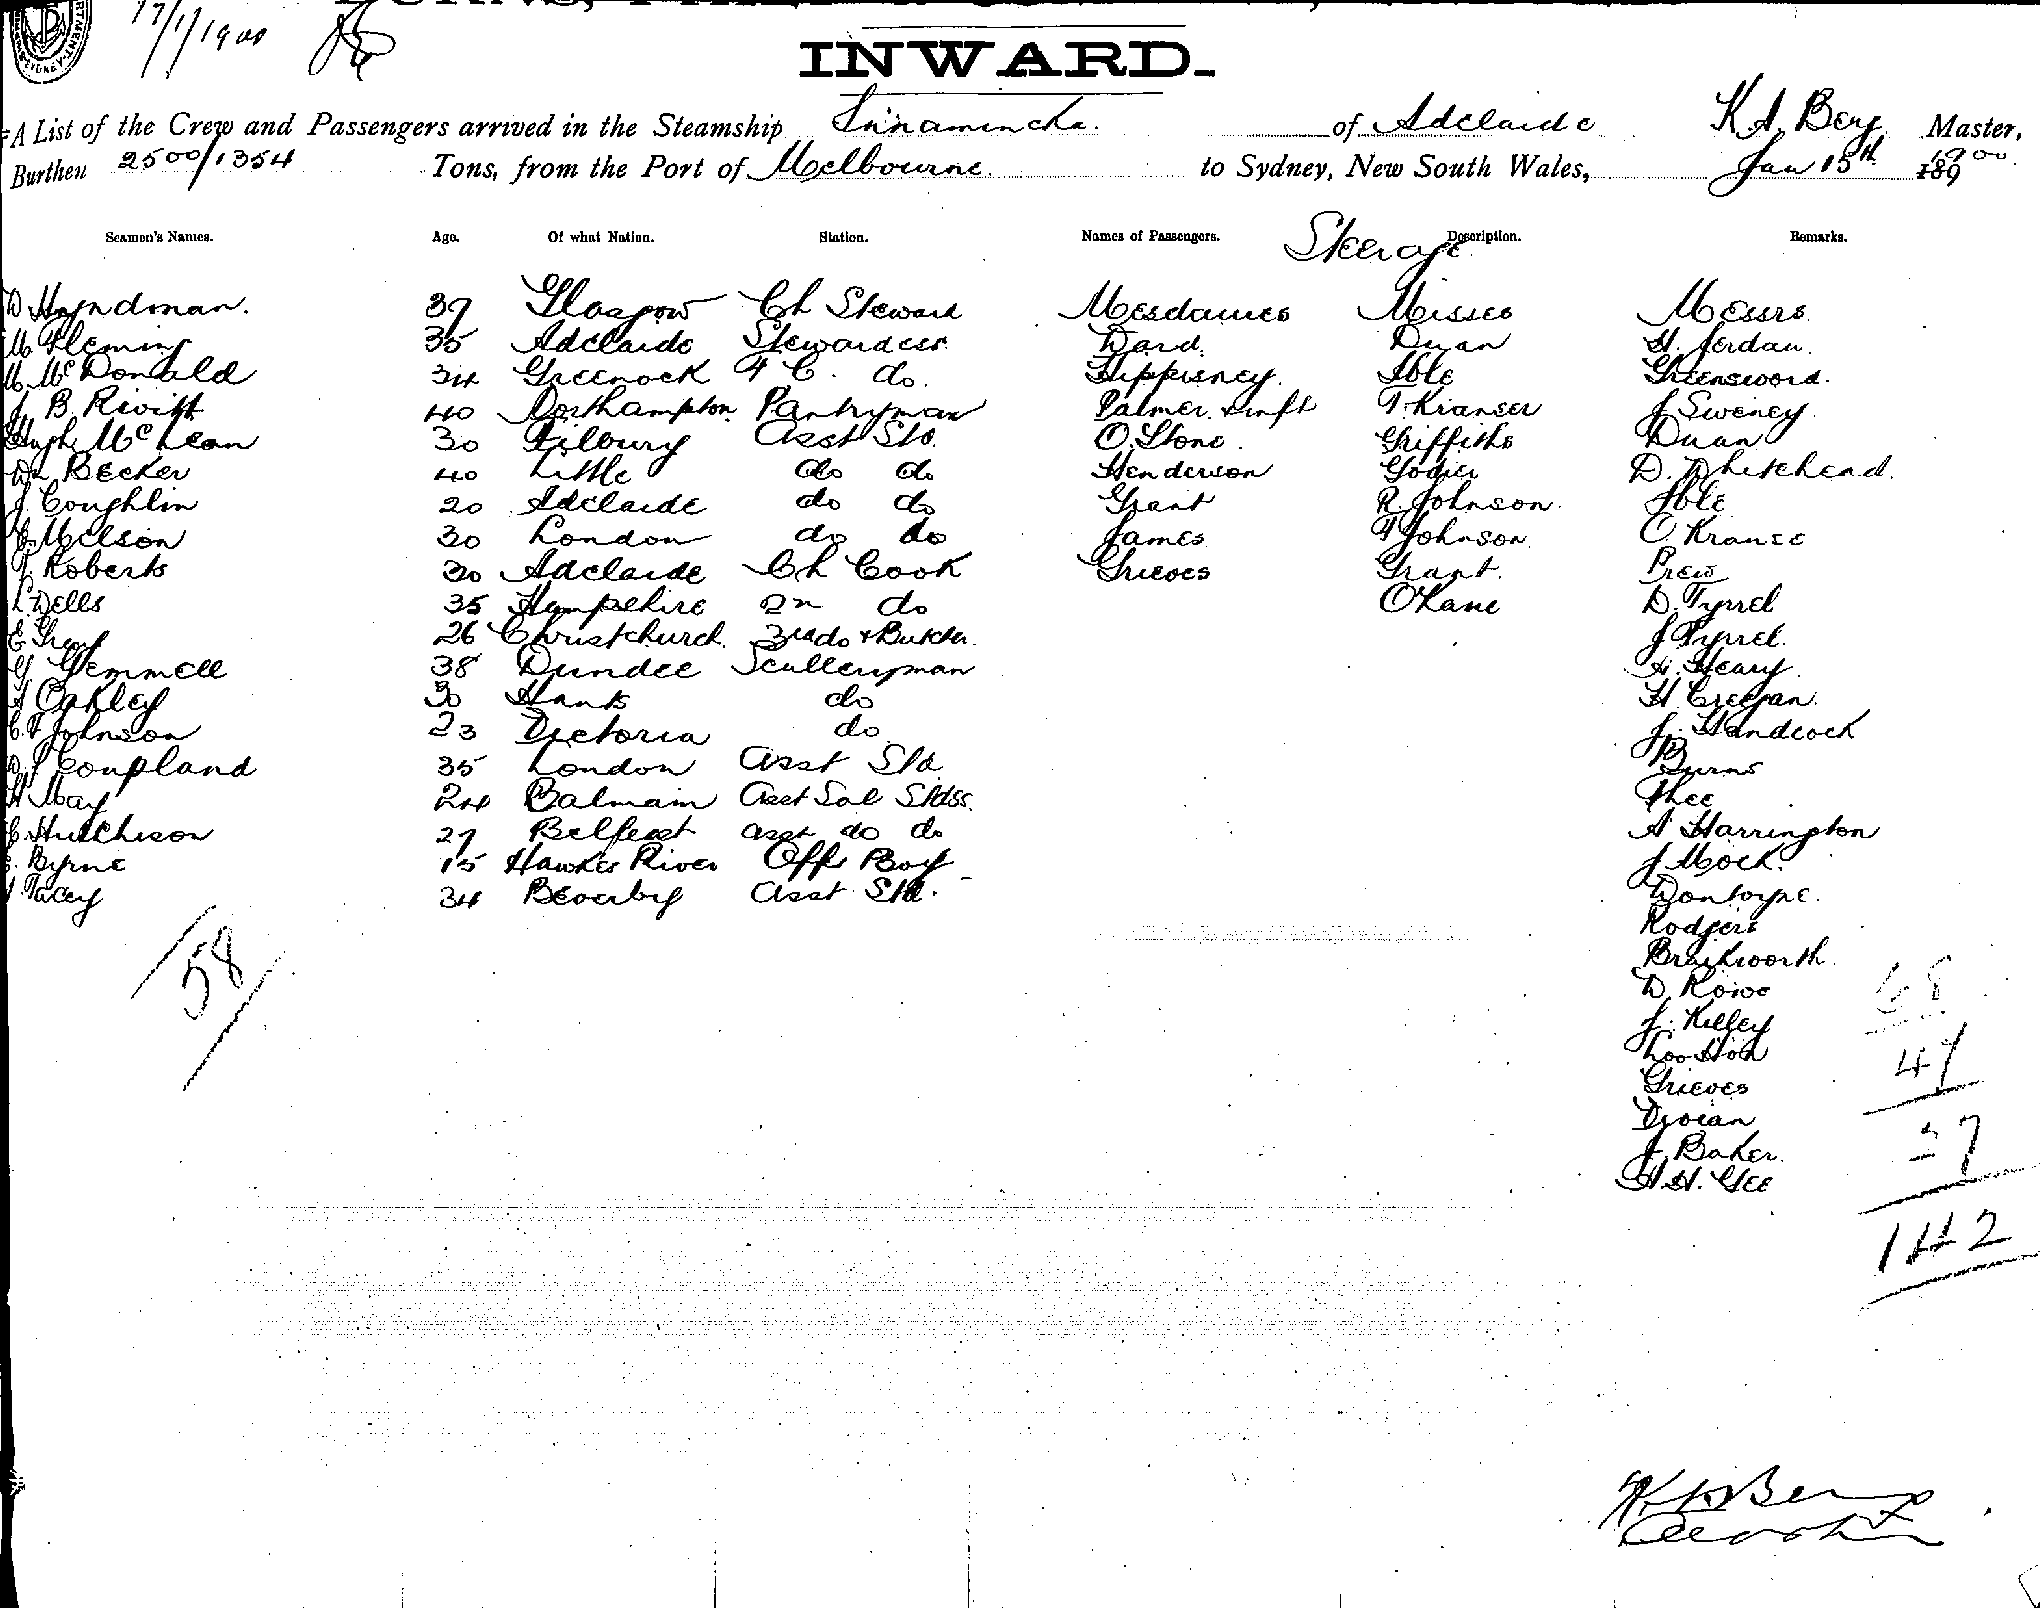 17/1/1900
INWARD.
A List of the Crew and Passengers arrived in the Steamship Innamincka. of Adelaide K A Berg Master,
Burthen 2500/1354 Tons, from the Port of Melbourne. to Sydney, New South Wales, Jan 15th 1900 189
Seamen's Names. Age. Of what Nation. Station. Names of Passengers. Description. Remarks.
Steerage
D Hyndman. 37 Glasgow Ch Steward Mesdames Misses Messrs
M Fleming 35 Adelaide Stewardess Ward. Duan H. Jerdan.
M McDonald 34 Greenock F C. do. Hippisney. Ible Greensword.
J B Rivitt 40 Northampton Pantryman Palmer & inft F Kranser J Sweney
Hugh McLean 30 Tilbury Asst Std. O. Stone. Griffiths Duan
Becker 40 Little do do Henderson Godier D. Whitehead.
J Coughlin 20 Adelaide do do Grant R Johnson. Ible
C. Melson 30 London do do James F Johnson O Kranse
J Roberts 30 Adelaide Ch Cook Grieves Grant. Prew
L. Wells 35 Hampshire 2n do O'Kane D. Tyrrel
E Gray 26 Christchurch. 3rd do & Butcher J Tyrrel.
G Gemmell 38 Dundee Sculleryman H. Heary
A Oakley 30 Hants do H Creegan.
C. F Johnson 23 Victoria do J. Handcock
D J Coupland 35 London Asst Std Burns
H May 24 Balmain Asst Sal Stdss. Thee
C Hutchison 27 Belfast asst do do A Harrington
Byrne 15 Hawkes River Offs Boy J Mock.
Tacey 34 Beverley Asst Std. Wontorpe.
Rodgers
58 Braithworth
D. Rowe 68
J. Killey
Loo Hon 47
Grieves
Dyoian
J. Baker. 27
A. H. Gee
142
K A Berg